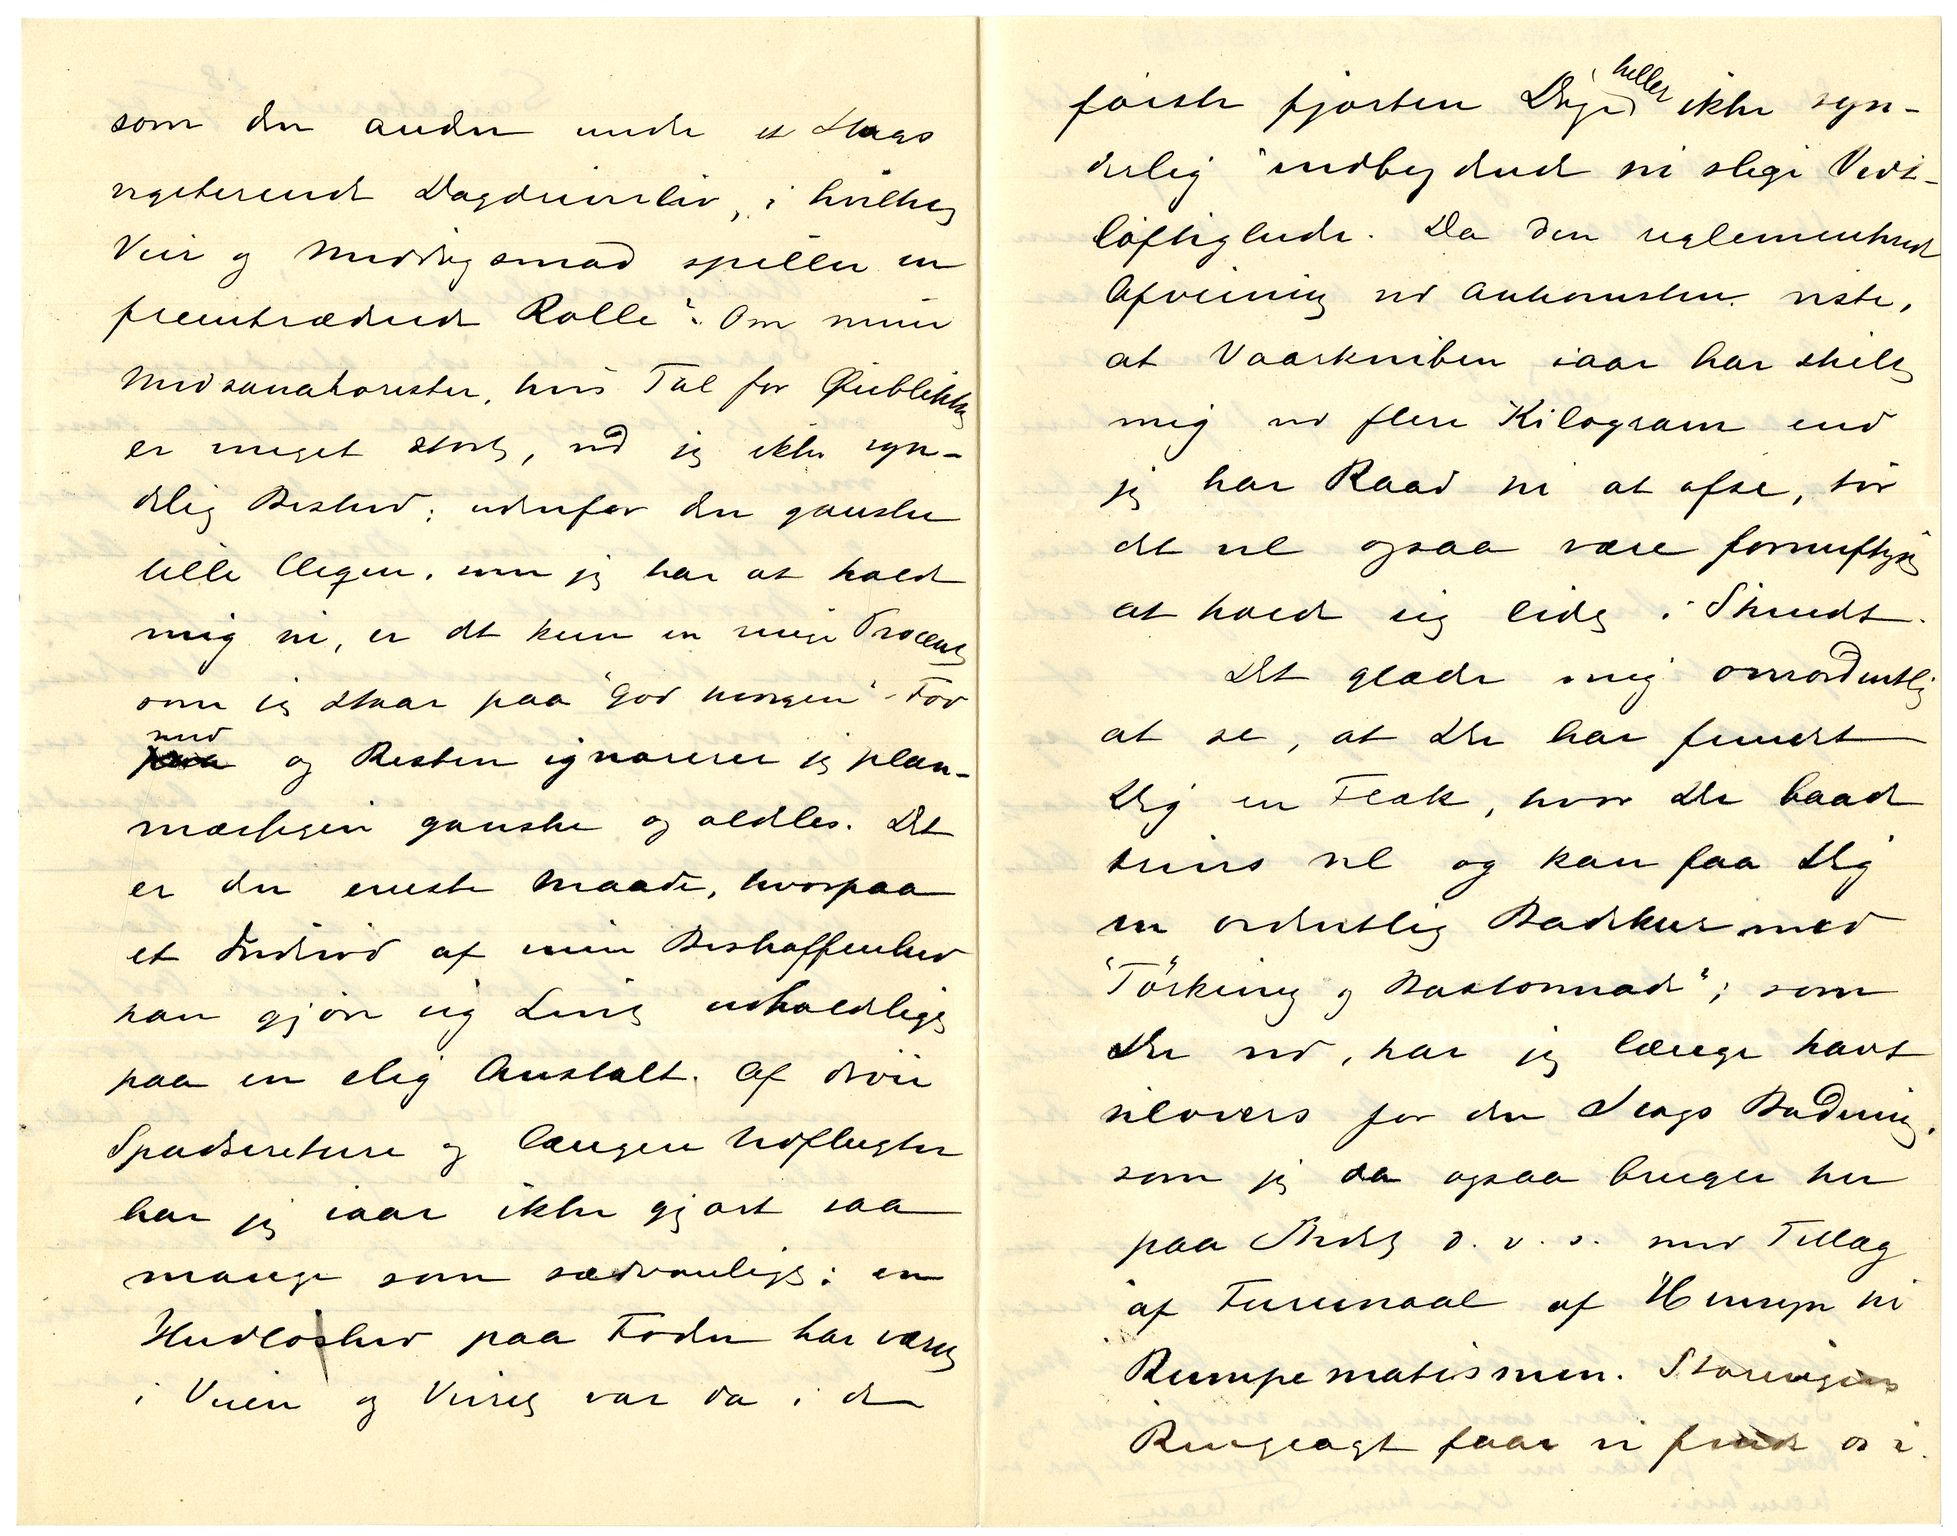 som den anden under et Slags
vegeterende Dagdriverliv, i hvilket
Veir og Middagsmad spiller en
fremtrædende Rolle". Om mine
Medsanatorister, hvis Tal for Øieblikket
er meget stort, ved jeg ikke syn-
delig Besked; udenfor den ganske
lille Clique, som jeg har at holde
mig til, er det kun en ringe Procent
som jeg staar paa "god morgen"-Fod
med og Resten ignorerer jeg plan-
mæssigen ganske og aldeles. Det
er den eneste Maade, hvorpaa
et Individ af min Beskaffenhed
kan gjøre sig Livet udholdeligt
paa en slig Anstalt. Af drøie
Spadsereture og længere Udflugter
har jeg iaar ikke gjort saa
mange som sædvanligt; en
Hudløshed paa Foden har været
i Veien og Veiret var da i de
første fjorten Dage heller ikke syn-
derlig indbydende til slige Vidt-
løftigheder. Da den reglementerede
Afveining ved Ankomsten viste,
at Vaarkniben iaar har skilt
mig ved flere Kilogram end
jeg har Raad til at afse, tør
det vel ogsaa være fornuftigst
at holde sig lidt i Skindet.
Det glæder mig overordentlig
at se, at Du har funnet
Dig en Flæk, hvor Du baade
trives vel og kan faa Dig
en ordentlig Badekur med
"Tørking og Bastonnade"; som
Du ved, har jeg længe havt
tilovers for den Slags Badning,
som jeg da ogsaa bruger her
paa Stedet d. v. s. med Tillæg
af Furunaal af Hensyn til
Rumpematismen. Storthingets
Ringeagt faar vi finde os i.